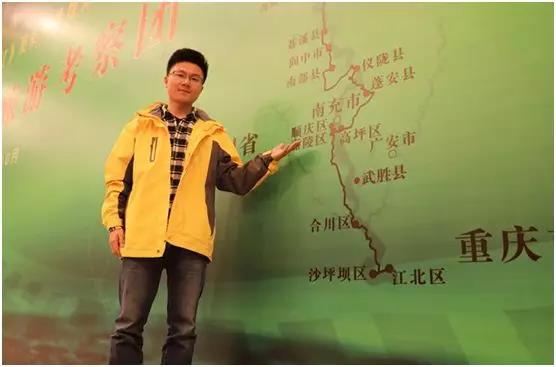 旅游考察团
苍溪县
阆中市
仪陇县
南部县
蓬安县
南充市
顺庆区
高坪区
陵区
广安市
省
武胜县
合川区
重庆
沙坪坝区
江北区